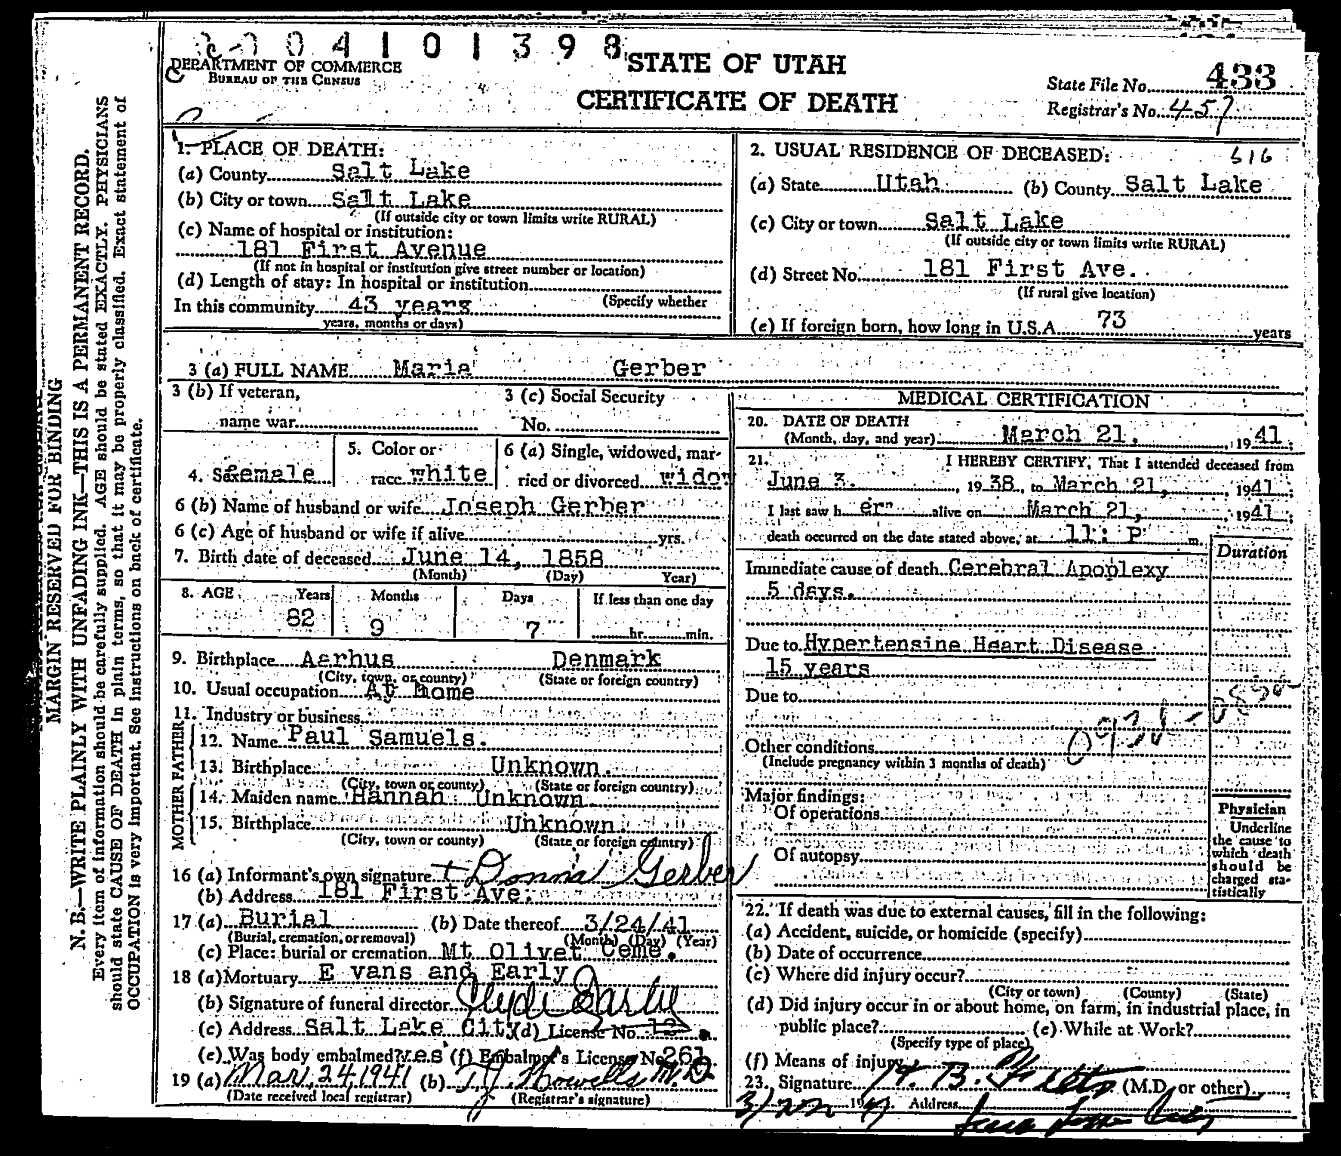 004101398
DEPARTMENT OF COMMERCE
BUREAU OF THE CENSUS
STATE OF UTAH
CERTIFICATE OF DEATH
State File No. 433
Registrar's No. 457
MARGIN RESERVED FOR BINDING
N. B.—WRITE PLAINLY WITH UNFADING INK—THIS IS A PERMANENT RECORD.
Every item of information should be carefully supplied. AGE should be stated EXACTLY. PHYSICIANS
should state CAUSE OF DEATH in plain terms, so that it may be properly classified. Exact statement of
OCCUPATION is very important. See instructions on back of certificate.
1. PLACE OF DEATH:
(a) County Salt Lake
(b) City or town Salt Lake
(If outside city or town limits write RURAL)
(c) Name of hospital or institution:
181 First Avenue
(If not in hospital or institution give street number or location)
(d) Length of stay: In hospital or institution
In this community 43 years (Specify whether
years, months or days)
2. USUAL RESIDENCE OF DECEASED: 616
(a) State Utah (b) County Salt Lake
(c) City or town Salt Lake
(If outside city or town limits write RURAL)
(d) Street No. 181 First Ave.
(If rural give location)
(e) If foreign born, how long in U.S.A. 73 years
3 (a) FULL NAME Marie Gerber
3 (b) If veteran,
name war
3 (c) Social Security
No.
4. Sex female
5. Color or
race white
6 (a) Single, widowed, mar-
ried or divorced widow
6 (b) Name of husband or wife Joseph Gerber
6 (c) Age of husband or wife if alive yrs.
7. Birth date of deceased June 14, 1858
(Month) (Day) Year)
8. AGE Years Months Days If less than one day
82 9 7 hr. min.
9. Birthplace Aarhus Denmark
(City, town, or county) (State or foreign country)
10. Usual occupation At Home
11. Industry or business
FATHER
12. Name Paul Samuels.
13. Birthplace Unknown.
(City, town or county) (State or foreign country)
MOTHER
14. Maiden name Hannah Unknown
15. Birthplace Unknown.
(City, town or county) (State or foreign country)
16 (a) Informant's own signature + Donna Gerber
(b) Address 181 First Ave.
17 (a) Burial (b) Date thereof 3/24/41
(Burial, cremation, or removal) (Month) (Day) (Year)
(c) Place: burial or cremation Mt Olivet Ceme.
18 (a) Mortuary E vans and Early
(b) Signature of funeral director Clyde Early
(c) Address Salt Lake City (d) License No. 12
(e) Was body embalmed? yes (f) Embalmer's License No. 261
19 (a) Mar. 24 1941 (b) T. J. Howells M.D.
(Date received local registrar) (Registrar's signature)
MEDICAL CERTIFICATION
20. DATE OF DEATH
(Month, day, and year) March 21, 1941
21. I HEREBY CERTIFY, That I attended deceased from
June 3, 1938, to March 21, 1941;
I last saw h er alive on March 21, 1941;
death occurred on the date stated above, at 11: P m.
Duration
Immediate cause of death Cerebral Apoplexy
5 days.
Due to Hypertensine Heart Disease
15 years
Due to
Other conditions
(Include pregnancy within 3 months of death)
Major findings:
Of operations
Of autopsy
Physician
Underline
the cause to
which death
should be
charged sta-
tistically
22. If death was due to external causes, fill in the following:
(a) Accident, suicide, or homicide (specify)
(b) Date of occurrence
(c) Where did injury occur?
(City or town) (County) (State)
(d) Did injury occur in or about home, on farm, in industrial place, in
public place? (e) While at Work?
(Specify type of place)
(f) Means of injury
23. Signature (M.D. or other)
Address